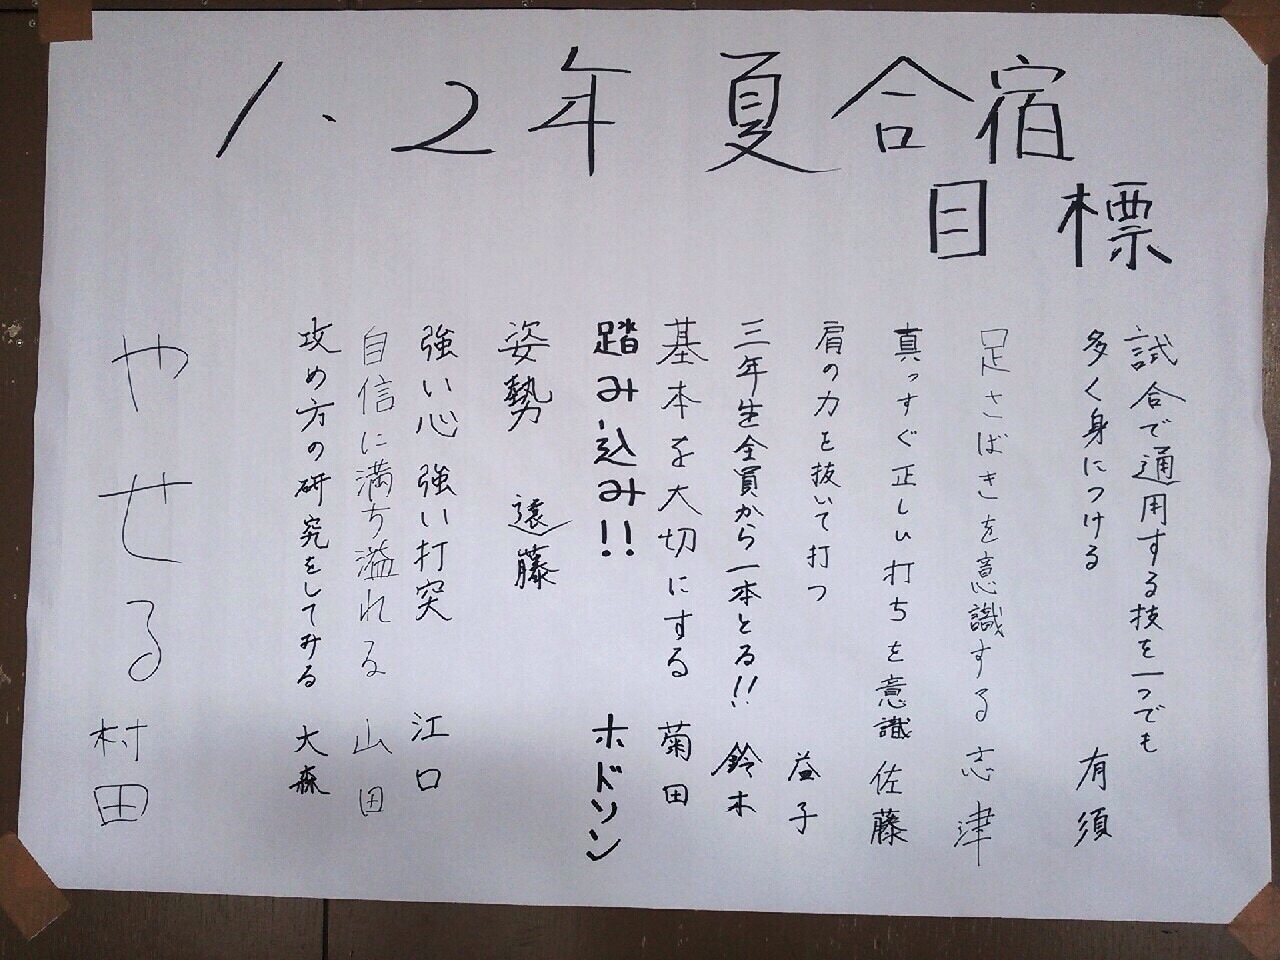 1、2年 夏合宿
目標
試合で通用する技を一つでも
多く身につける 有須
足さばきを意識する 志津
真っすぐ正しい打ちを意識 佐藤
肩の力を抜いて打つ 益子
三年生全員から一本とる!! 鈴木
基本を大切にする 菊田
踏み込み!! ホドソン
姿勢 遠藤
強い心 強い打突 江口
自信に満ち溢れる 山田
攻め方の研究をしてみる 大森
やせる 村田